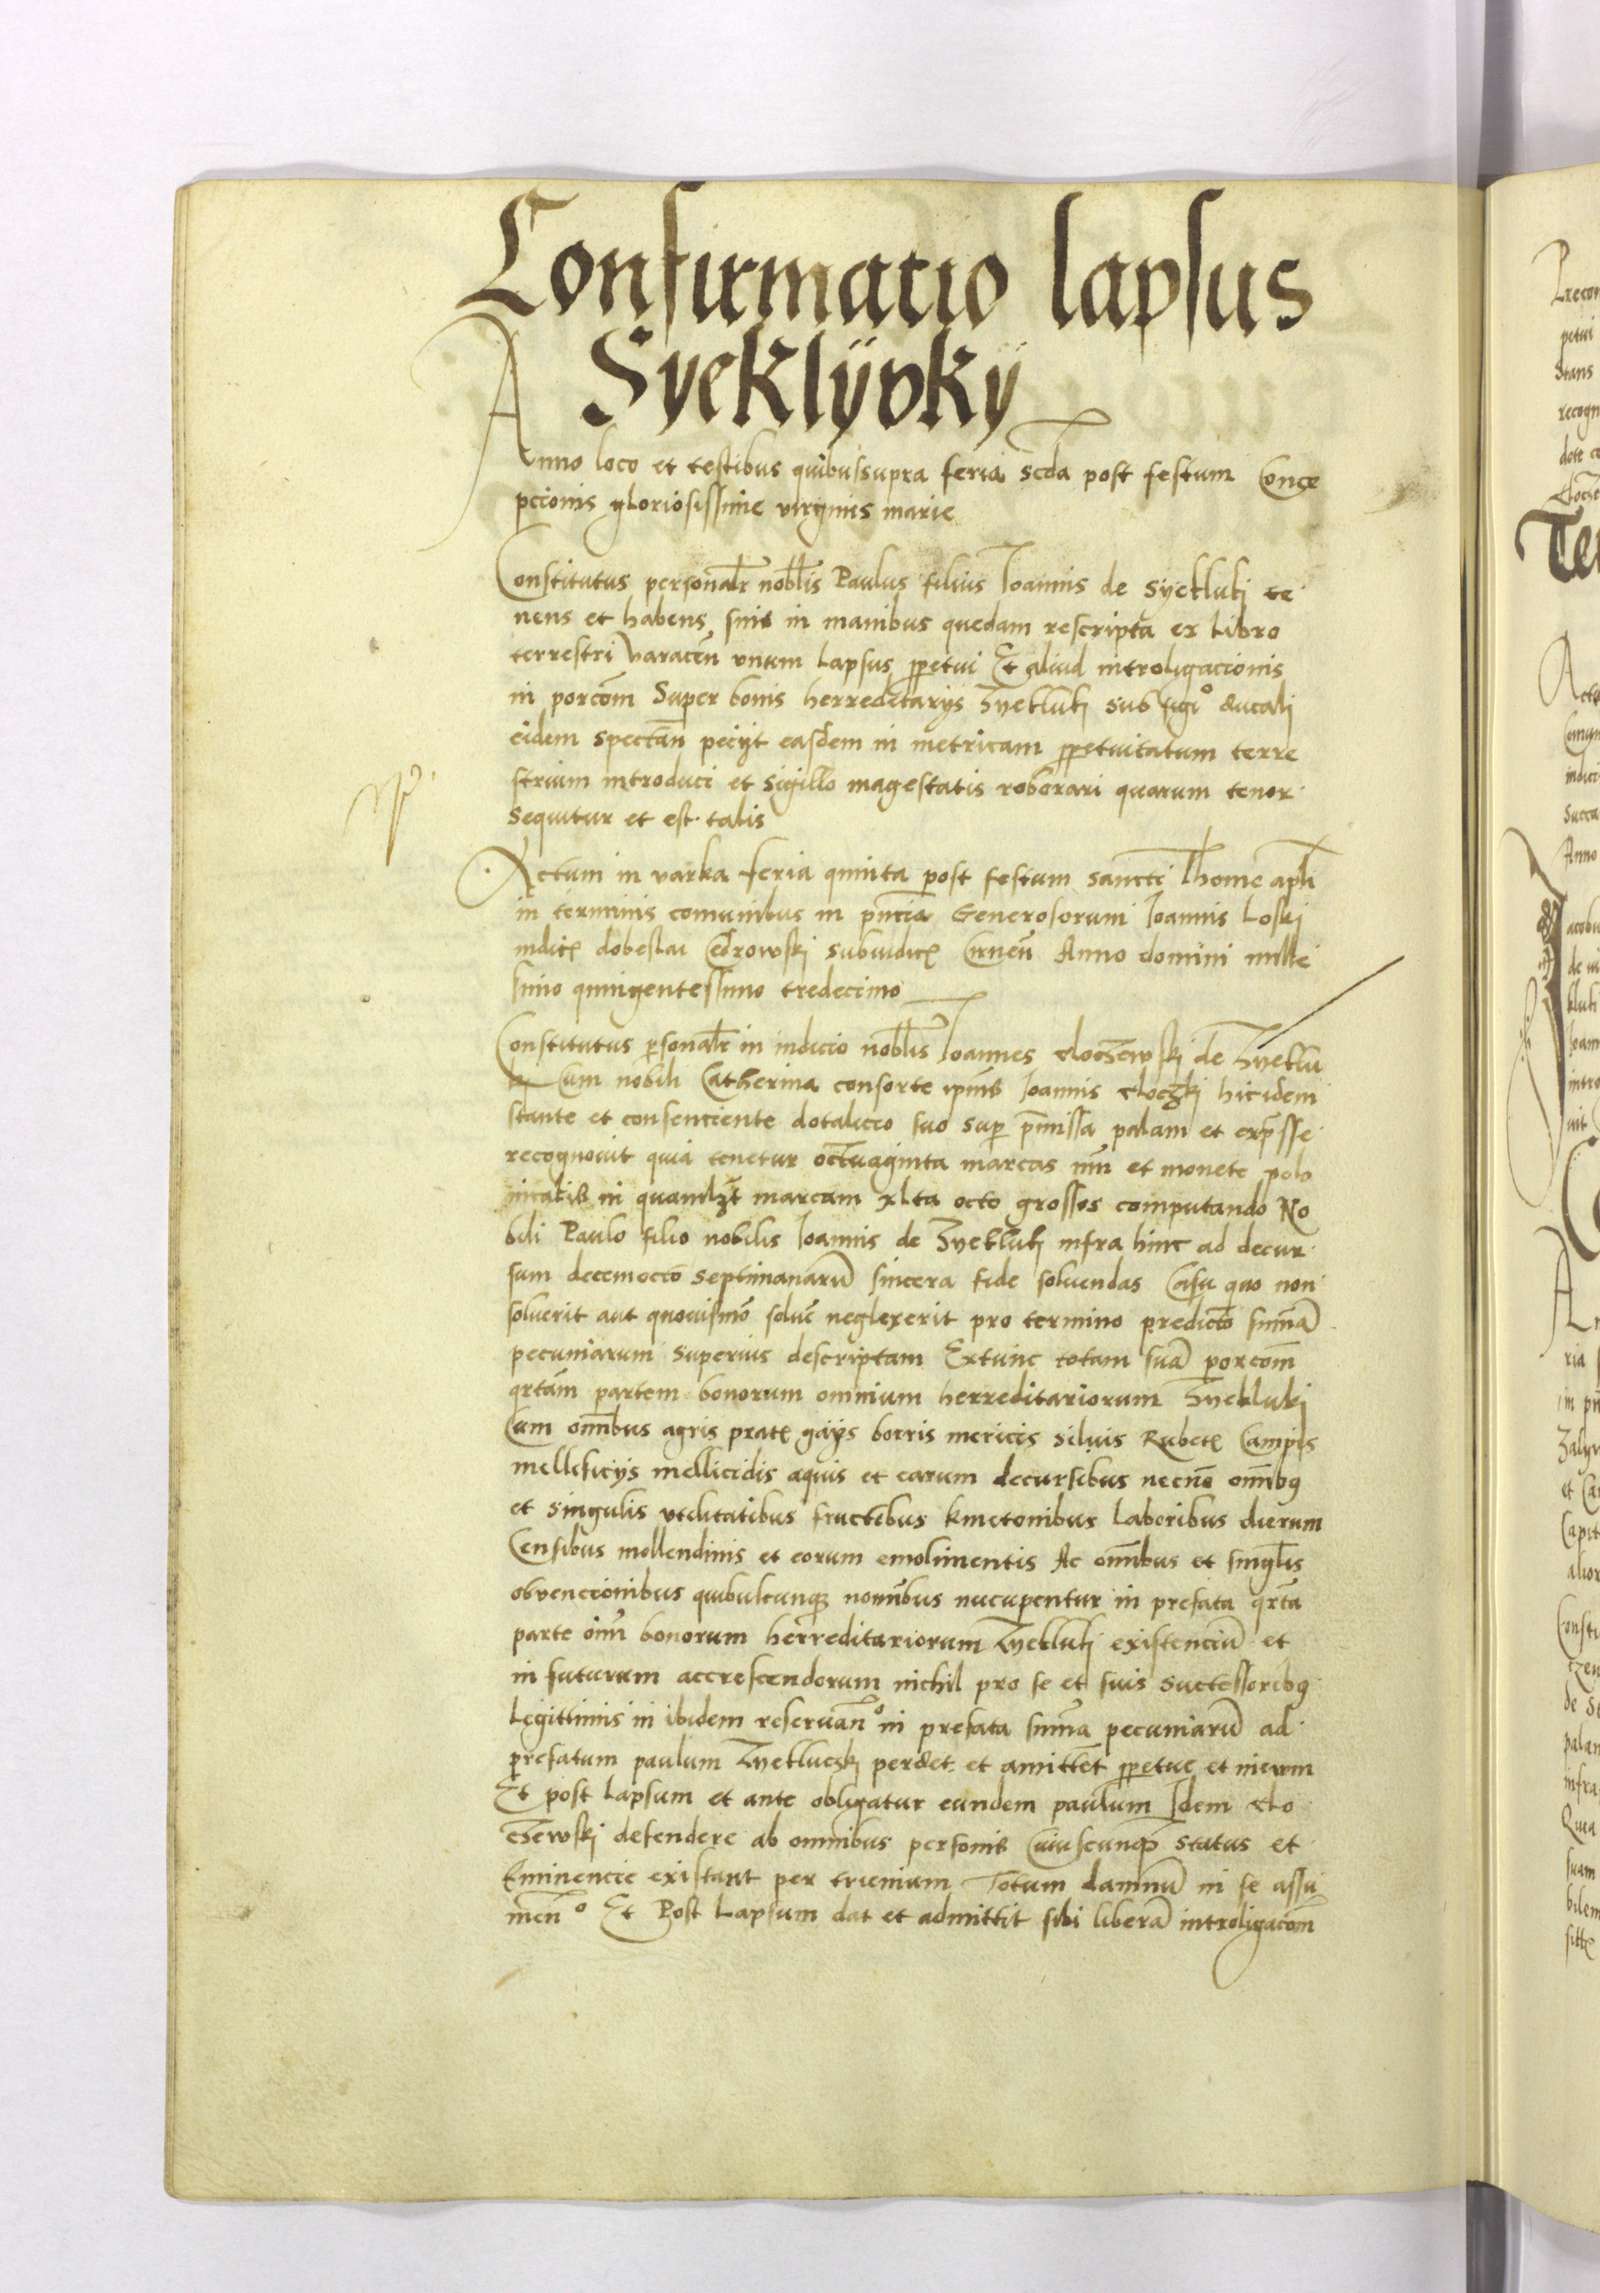 Confirmatio lapsus
Syeklÿvkÿ
Anno loco et testibus quibussupra feria scda post festum Conce
pcionis gloriosissime virginis marie
Constitutus personalr nobilis Paulus filius Ioannis de Syekluki te
nens et habens suis in manibus quedam rescripta ex libro
terrestri Varacen unum lapsus ppetui Et aliud introligacionis
in porcom Super bonis herreditarys Zyekluki sub sigo ducali
eidem spectan peciyt easdem in metricam ppetuitatum terre
strium introduci et sigillo magestatis roborari quarum tenor
sequitur et est talis
Actum in varka feria quinta post festum sancti Thome apli
in terminis comunibus in pncia Generosorum Ioannis Loski
iudic dobeslai Cedrowski subiudic Cirnen Anno domini mille
simo quingentessimo tredecimo
Constitutus psonalr in iudicio nobilis Ioannes cloczewski de Zyeklu
ki Cum nobili Catherina consorte ipius Ioannis cloczki hic idem
stante et consenciente dotalicio suo sup pmissa palam et expsse
recognovit quia tenetur octuaginta marcas nm et monete polo
nicalis in quamlzt marcam xlta octo grossos computando No
bili Paulo filio nobilis Ioannis de Zyekluki infra hinc ad decur
sum decemocto septimanaru sincera fide soluendas Casu quo non
soluerit aut quouismo solue neglexerit pro termino predicto suma
pecuniarum superius descriptam Extunc totam sua porcom
qrtam partem bonorum omnium herreditariorum Zyekluki
Cum omibus agris prate gays borris mericis siluis Rubete Campis
mellificys mellicidis aquis et earum decursibus necno omibus
et singulis vtilitatibus fructibus kmetonibus laboribus dierum
Censibus mollendinis et eorum emolimentis Ac omibus et singlis
obvencionibus quibuscunqz nomibus nucupentur in prefata qrta
parte oim bonorum herreditariorum Zyekluki existenciu et
in futurum accrescendorum nichil pro se et suis successoribus
legittimis in ibidem reseruano in prefata suma pecuniaru ad
prefatum paulum Zyeklucski perdet et amittet ppetue et in evum
Et post lapsum et ante obligatur eundem paulum Idem clo
czewski defendere ab omnibus personis Cuiuscunqz status et
Eminencie existant per trienium Totum damnu in se assu
meno Et Post lapsum dat et admittit sibi libera introligacom